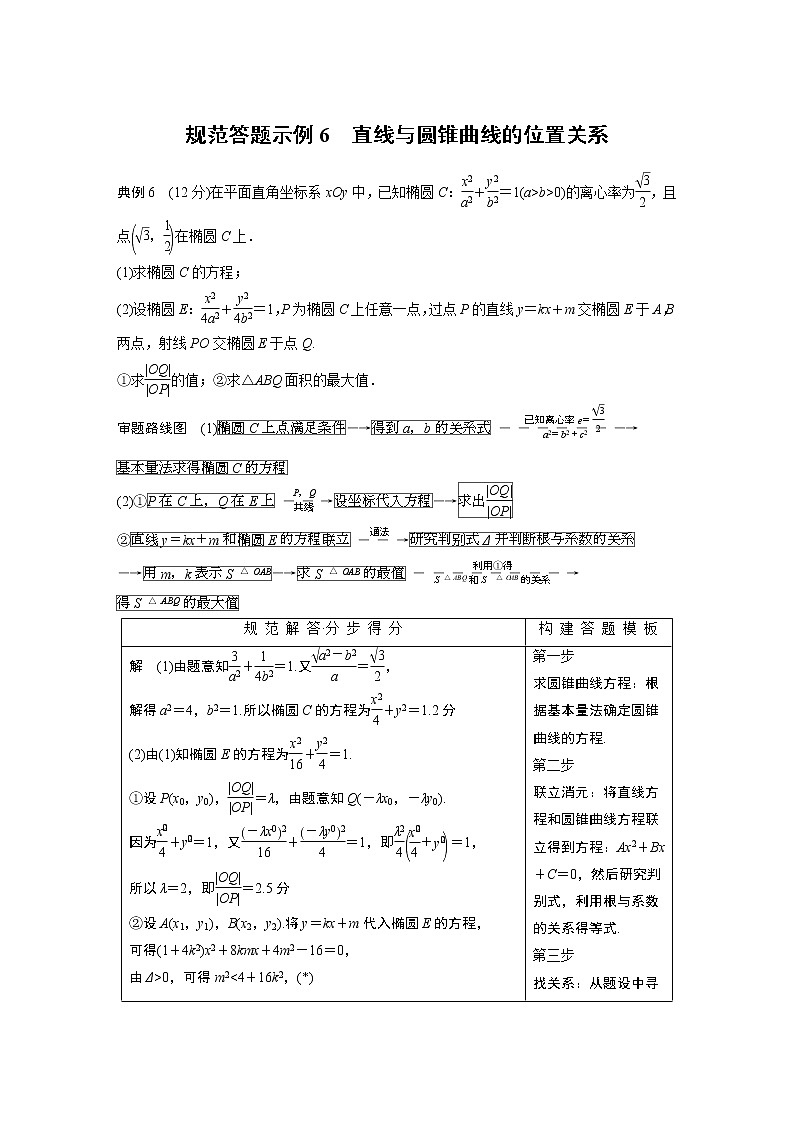 规范答题示例6　直线与圆锥曲线的位置关系
典例6　(12分)在平面直角坐标系xOy中，已知椭圆C：x2/a2＋y2/b2＝1(a>b>0)的离心率为√3/2，且
点(√3，1/2)在椭圆C上．
(1)求椭圆C的方程；
(2)设椭圆E：x2/4a2＋y2/4b2＝1，P为椭圆C上任意一点，过点P的直线y＝kx＋m交椭圆E于A，B
两点，射线PO交椭圆E于点Q.
①求|OQ|/|OP|的值；②求△ABQ面积的最大值．
审题路线图　(1)椭圆C上点满足条件―→得到a，b的关系式 ― 已知离心率e＝√3/2 a2＝b2＋c2 ―→
基本量法求得椭圆C的方程
(2)①P在C上，Q在E上 ― P，Q 共线 →设坐标代入方程―→求出|OQ|/|OP|
②直线y＝kx＋m和椭圆E的方程联立 ― 通法 →研究判别式Δ并判断根与系数的关系
―→用m，k表示S△OAB―→求S△OAB的最值 ― 利用①得 S△ABQ和S△OAB的关系 →
得S△ABQ的最大值
规 范 解 答·分 步 得 分
解　(1)由题意知3/a2＋1/4b2＝1.又√a2－b2/a＝√3/2，
解得a2＝4，b2＝1.所以椭圆C的方程为x2/4＋y2＝1.2分
(2)由(1)知椭圆E的方程为x2/16＋y2/4＝1.
①设P(x0，y0)，|OQ|/|OP|＝λ，由题意知Q(－λx0，－λy0)．
因为x20/4＋y20＝1，又(－λx0)2/16＋(－λy0)2/4＝1，即λ2/4(x20/4＋y20)＝1，
所以λ＝2，即|OQ|/|OP|＝2.5分
②设A(x1，y1)，B(x2，y2)．将y＝kx＋m代入椭圆E的方程，
可得(1＋4k2)x2＋8kmx＋4m2－16＝0，
由Δ>0，可得m2<4＋16k2，(*)
构 建 答 题 模 板
第一步
求圆锥曲线方程：根
据基本量法确定圆锥
曲线的方程.
第二步
联立消元：将直线方
程和圆锥曲线方程联
立得到方程：Ax2＋Bx
＋C＝0，然后研究判
别式，利用根与系数
的关系得等式.
第三步
找关系：从题设中寻